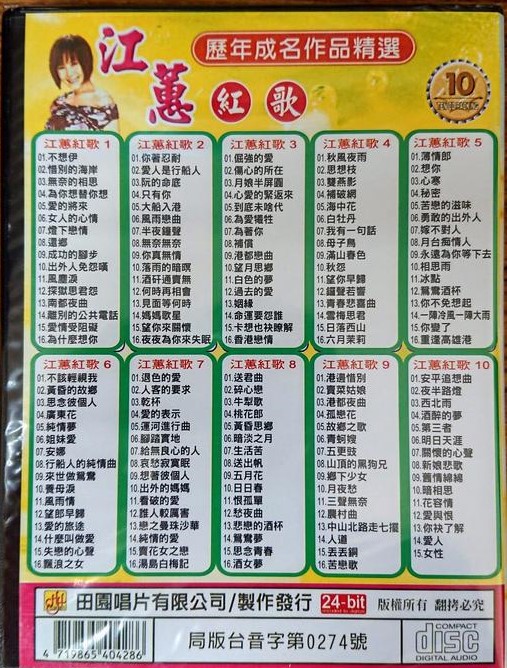 江蕙
紅歌
歷年成名作品精選
10
江蕙紅歌 1
01.不想伊
02.惜別的海岸
03.無奈的相思
04.為你想替你想
05.愛的將來
06.女人的心情
07.燈下戀情
08.還鄉
09.成功的腳步
10.出外人免怨嘆
11.風塵淚
12.探獄思君怨
13.南都夜曲
14.離別的公共電話
15.愛情受阻礙
16.為什麼想你
江蕙紅歌 2
01.你著忍耐
02.愛人是行船人
03.阮的命底
04.只有你
05.大船入港
06.風雨戀曲
07.半夜鐘聲
08.無奈無奈
09.你真無情
10.落雨的暗暝
11.酒矸通賣無
12.何時再相會
13.見面等何時
14.媽媽歌星
15.望你來關懷
16.夜夜為你來失眠
江蕙紅歌 3
01.倔強的愛
02.傷心的所在
03.月娘半屏圓
04.心愛的緊返來
05.到底未啥代
06.為愛犧牲
07.為著你
08.補償
09.港都戀曲
10.望月思鄉
11.白色的夢
12.過去的愛
13.姻緣
14.命運要怨誰
15.卡想也袂瞭解
16.香港戀情
江蕙紅歌 4
01.秋風夜雨
02.思想枝
03.雙燕影
04.補破網
05.海中花
06.白牡丹
07.我有一句話
08.母子鳥
09.滿山春色
10.秋怨
11.望你早歸
12.鑼聲若響
13.青春悲喜曲
14.雪梅思君
15.日落西山
16.六月茉莉
江蕙紅歌 5
01.薄情郎
02.想你
03.心寒
04.秘密
05.苦戀的滋味
06.勇敢的出外人
07.嫁不對人
08.月台痴情人
09.永遠為你等下去
10.相思雨
11.冰點
12.鴛鴦酒杯
13.你不免想起
14.一陣冷風一陣大雨
15.你變了
16.重逢高雄港
江蕙紅歌 6
01.不該輕視我
02.黃昏的故鄉
03.思念彼個人
04.廣東花
05.純情夢
06.姐妹愛
07.安娜
08.行船人的純情曲
09.來世做鴛鴦
10.養母淚
11.風雨情
12.望郎早歸
13.愛的旅途
14.什麼叫做愛
15.失戀的心聲
16.飄浪之女
江蕙紅歌 7
01.退色的愛
02.人客的要求
03.乾杯
04.愛的表示
05.運河進行曲
06.腳踏實地
07.給無良心的人
08.哀愁寂寞眠
09.想著彼個人
10.出外的媽媽
11.看破的愛
12.誰人較厲害
13.戀之曼珠沙華
14.純情的愛
15.賣花女之戀
16.湯島白梅記
江蕙紅歌 8
01.送君曲
02.碎心戀
03.牛犁歌
04.桃花郎
05.黃昏思鄉
06.暗淡之月
07.生活苦
08.送出帆
09.五月花
10.日日春
11.恨孤單
12.愁夜曲
13.悲戀的酒杯
14.鴛鴦夢
15.思念青春
16.酒女夢
江蕙紅歌 9
01.港邊惜別
02.賣菜姑娘
03.港都夜曲
04.孤戀花
05.故鄉之歌
06.青蚵嫂
07.五更鼓
08.山頂的黑狗兄
09.鄉下少女
10.月夜愁
11.三聲無奈
12.農村曲
13.中山北路走七擺
14.人道
15.丟丟銅
16.苦戀歌
江蕙紅歌 10
01.安平追想曲
02.夜半路燈
03.西北雨
04.酒醉的夢
05.第三者
06.明日天涯
07.關懷的心聲
08.新娘悲歌
09.舊情綿綿
10.暗相思
11.花容情
12.愛與恨
13.你袂了解
14.愛人
15.女性
田園唱片有限公司/製作發行
24-bit
版權所有 翻拷必究
局版台音字第0274號
4 719865 404286
COMPACT
disc
DIGITAL AUDIO